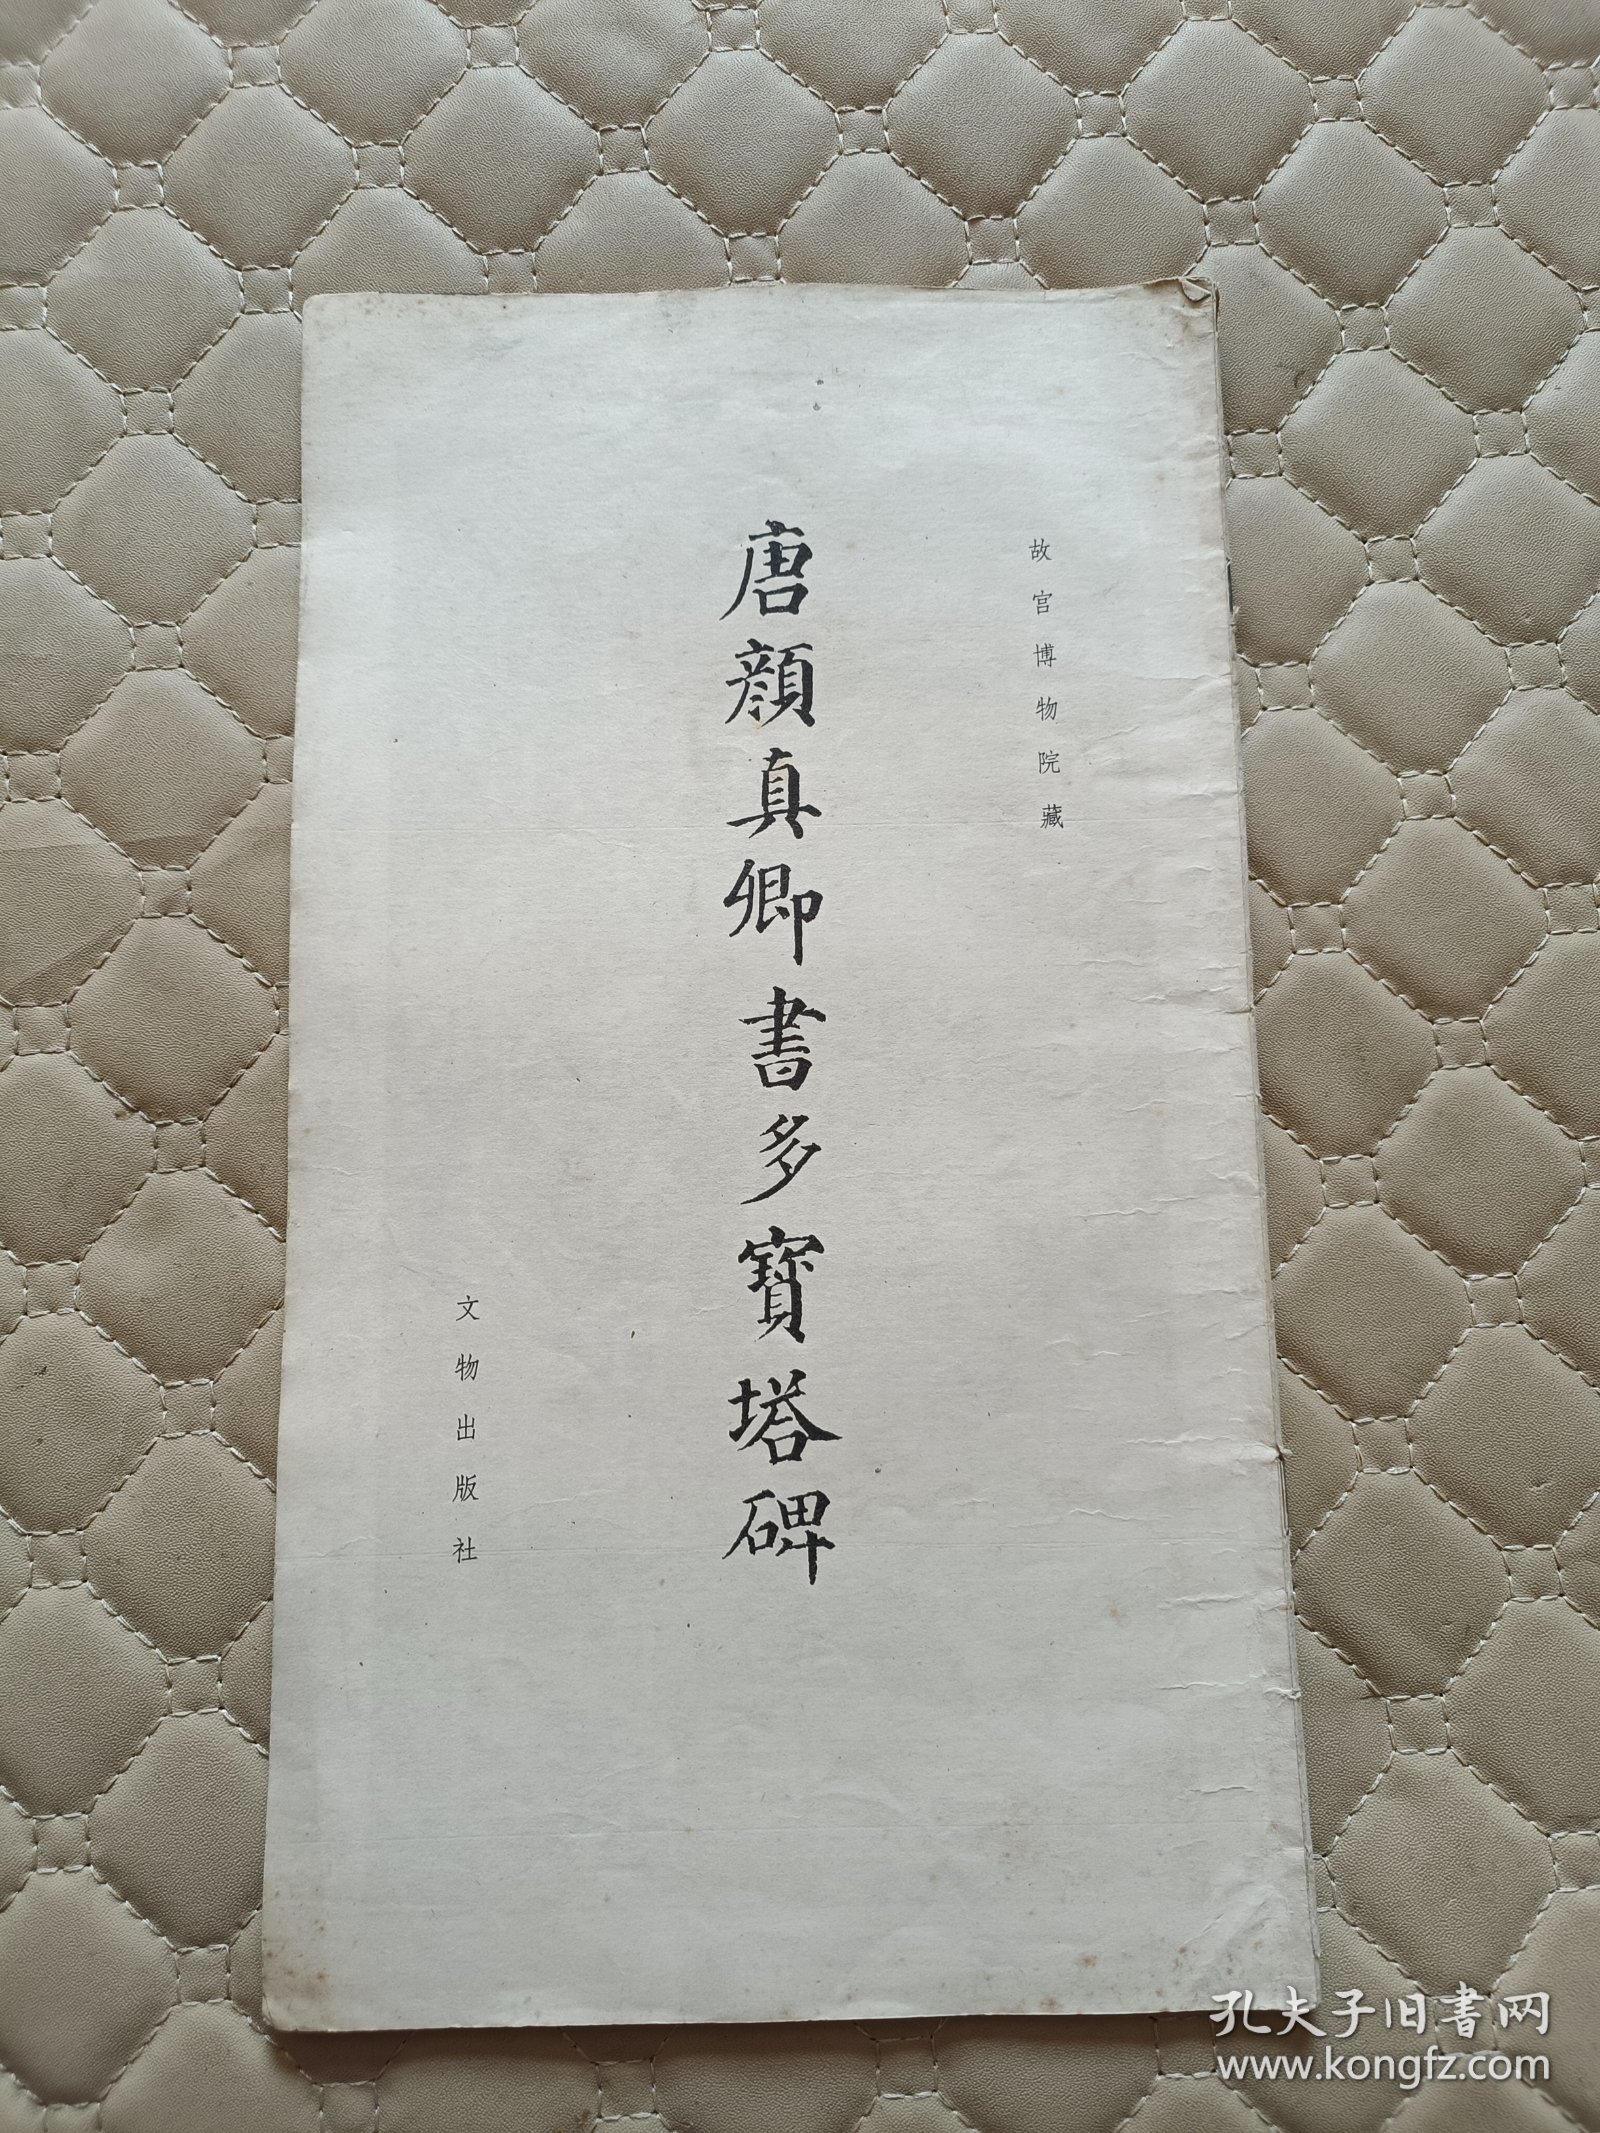 故宫博物院藏
唐顔真卿書多寶塔碑
文物出版社
孔夫子旧书网
www.kongfz.com